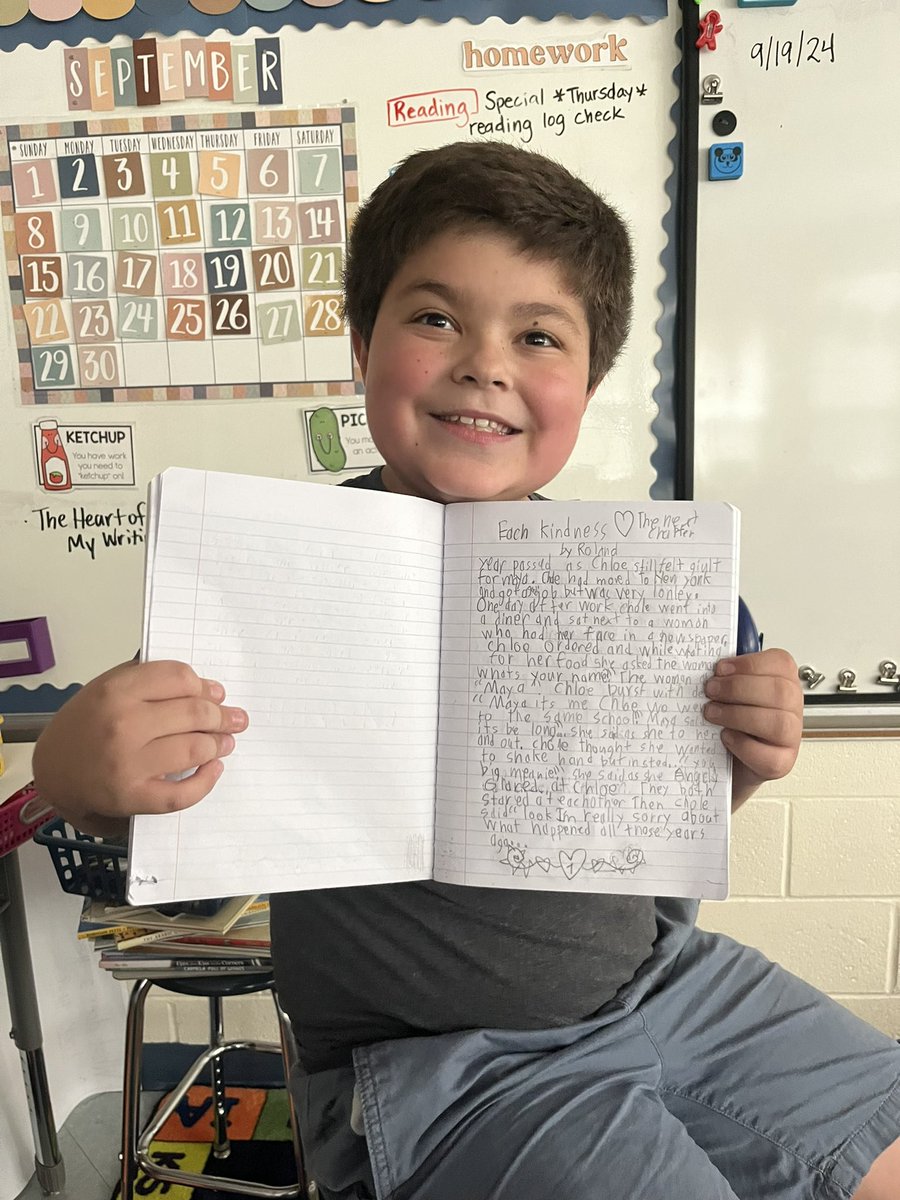 SEPTEMBER
SUNDAY MONDAY TUESDAY WEDNESDAY THURSDAY FRIDAY SATURDAY
1 2 3 4 5 6 7
8 9 10 11 12 13 14
15 16 17 18 19 20 21
22 23 24 25 26 27 28
29 30
homework
Reading Special *Thursday*
reading log check
9/19/24
KETCHUP
You have work
you need to
"ketchup" on!
PIC
You m
an ac
The Heart of
My Writi
Each kindness The next
chapter
by Roland
Year passed as Chloe still felt giult
for maya. Chloe had moved to New york
and got a job but was very lonley.
One day after work chole went into
a diner and sat next to a woman
who had her face in a newspaper
chloe ordered and while waiting
for her food she asked the woman
whats your name? The woman
"Maya" Chloe burst with
"Maya its me Chloe we went
to the same school" Maya
its be long".. she said as she
and out. chole thought she wanted
to shake hand but insted.. "you
big meanie" she said as she Angely
stared at Chloe. They both
stared at eachother Then chole
said "look I'm really sorry about
what happened all those years
ago...
1